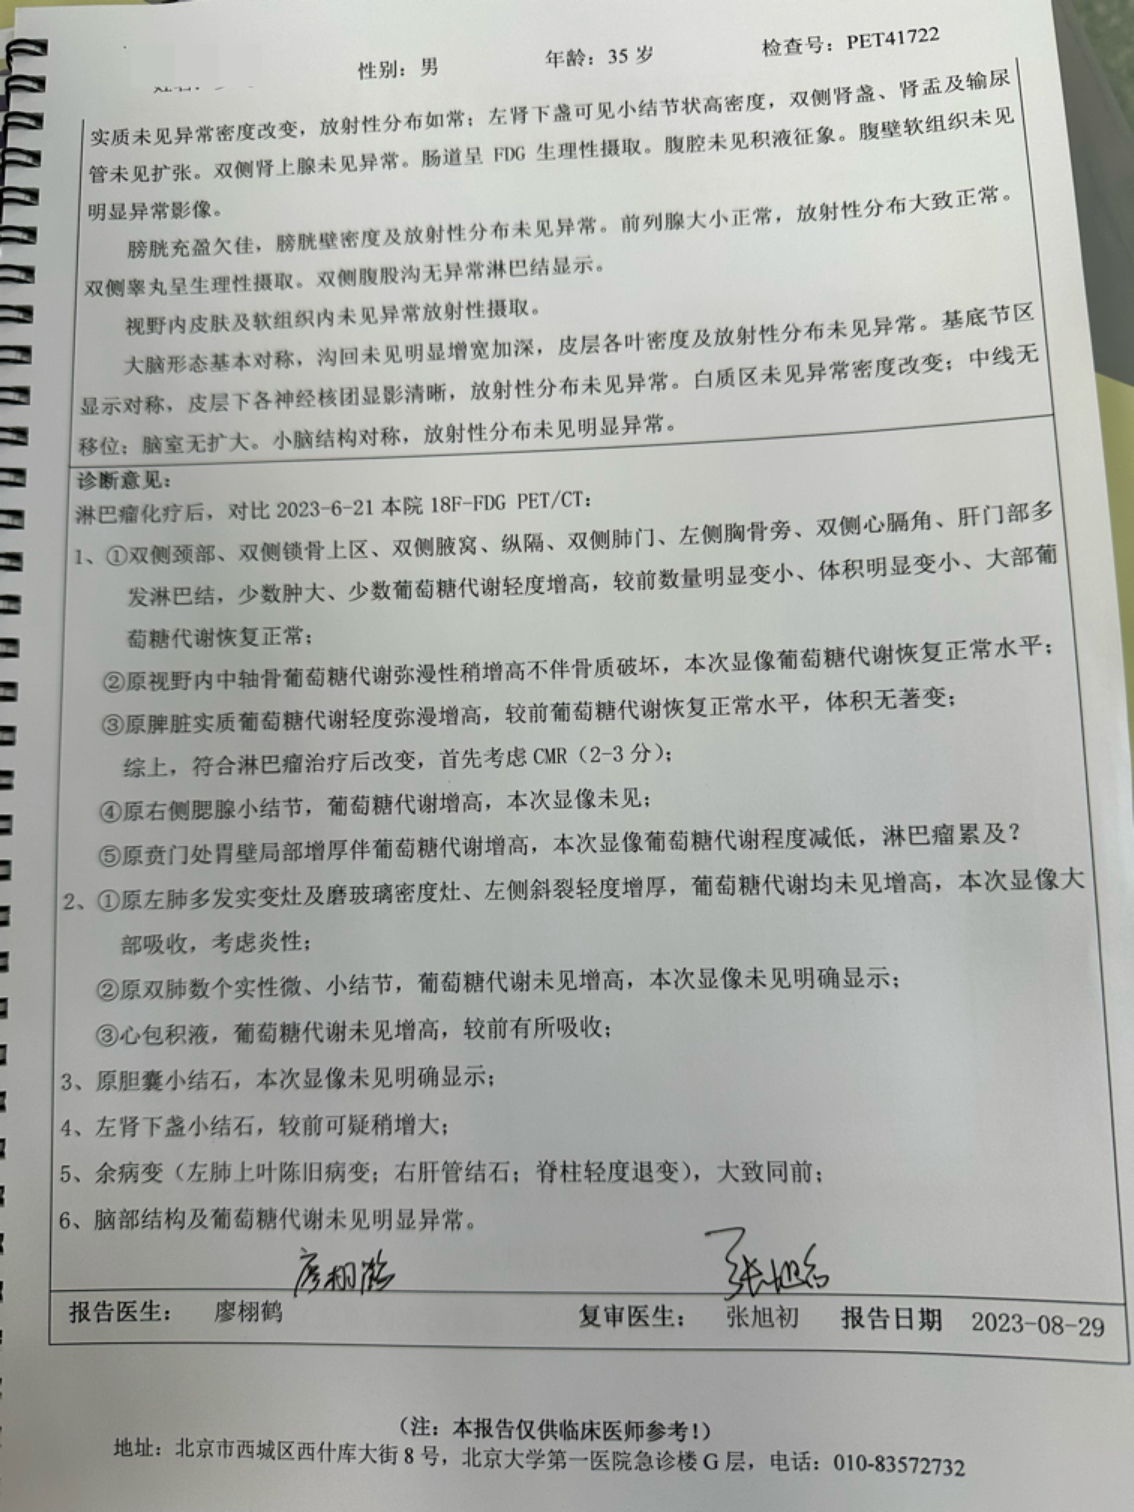 性别：男 年龄：35 岁 检查号：PET41722
实质未见异常密度改变，放射性分布如常；左肾下盏可见小结节状高密度，双侧肾盏、肾盂及输尿
管未见扩张。双侧肾上腺未见异常。肠道呈 FDG 生理性摄取。腹腔未见积液征象。腹壁软组织未见
明显异常影像。
膀胱充盈欠佳，膀胱壁密度及放射性分布未见异常。前列腺大小正常，放射性分布大致正常。
双侧睾丸呈生理性摄取。双侧腹股沟无异常淋巴结显示。
视野内皮肤及软组织内未见异常放射性摄取。
大脑形态基本对称，沟回未见明显增宽加深，皮层各叶密度及放射性分布未见异常。基底节区
显示对称，皮层下各神经核团显影清晰，放射性分布未见异常。白质区未见异常密度改变；中线无
移位；脑室无扩大。小脑结构对称，放射性分布未见明显异常。
诊断意见：
淋巴瘤化疗后，对比 2023-6-21 本院 18F-FDG PET/CT：
1、①双侧颈部、双侧锁骨上区、双侧腋窝、纵隔、双侧肺门、左侧胸骨旁、双侧心膈角、肝门部多
发淋巴结，少数肿大、少数葡萄糖代谢轻度增高，较前数量明显变小、体积明显变小、大部葡
萄糖代谢恢复正常；
②原视野内中轴骨葡萄糖代谢弥漫性稍增高不伴骨质破坏，本次显像葡萄糖代谢恢复正常水平；
③原脾脏实质葡萄糖代谢轻度弥漫增高，较前葡萄糖代谢恢复正常水平，体积无著变；
综上，符合淋巴瘤治疗后改变，首先考虑 CMR（2-3 分）；
④原右侧腮腺小结节，葡萄糖代谢增高，本次显像未见；
⑤原贲门处胃壁局部增厚伴葡萄糖代谢增高，本次显像葡萄糖代谢程度减低，淋巴瘤累及？
2、①原左肺多发实变灶及磨玻璃密度灶、左侧斜裂轻度增厚，葡萄糖代谢均未见增高，本次显像大
部吸收，考虑炎性；
②原双肺数个实性微、小结节，葡萄糖代谢未见增高，本次显像未见明确显示；
③心包积液，葡萄糖代谢未见增高，较前有所吸收；
3、原胆囊小结石，本次显像未见明确显示；
4、左肾下盏小结石，较前可疑稍增大；
5、余病变（左肺上叶陈旧病变；右肝管结石；脊柱轻度退变），大致同前；
6、脑部结构及葡萄糖代谢未见明显异常。
廖栩鹤 张旭初
报告医生： 廖栩鹤 复审医生： 张旭初 报告日期 2023-08-29
（注：本报告仅供临床医师参考！）
地址：北京市西城区西什库大街 8 号，北京大学第一医院急诊楼 G 层，电话：010-83572732